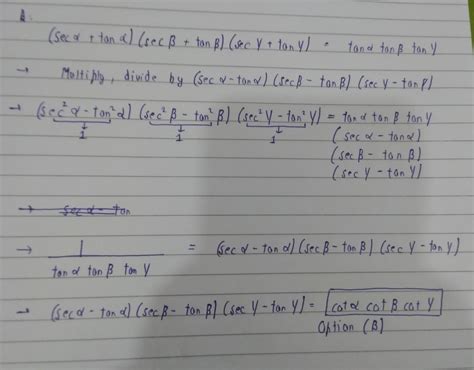 (sec α + tan α) (sec β + tan β) (sec γ + tan γ) = tan α tan β tan γ
→ Multiply, divide by (sec α - tan α) (sec β - tan β) (sec γ - tan β)
→ (sec² α - tan² α) (sec² β - tan² β) (sec² γ - tan² γ) = tan α tan β tan γ
↓ ↓ ↓ (sec α - tan α)
1 1 1 (sec β - tan β)
(sec γ - tan γ)
→ sec α - tan
→ 1 = (sec α - tan α) (sec β - tan β) (sec γ - tan γ)
tan α tan β tan γ
→ (sec α - tan α) (sec β - tan β) (sec γ - tan γ) = cot α cot β cot γ
Option (B)